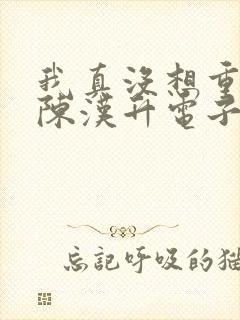 我真沒想重
陳漢升電子
忘記呼吸的猫